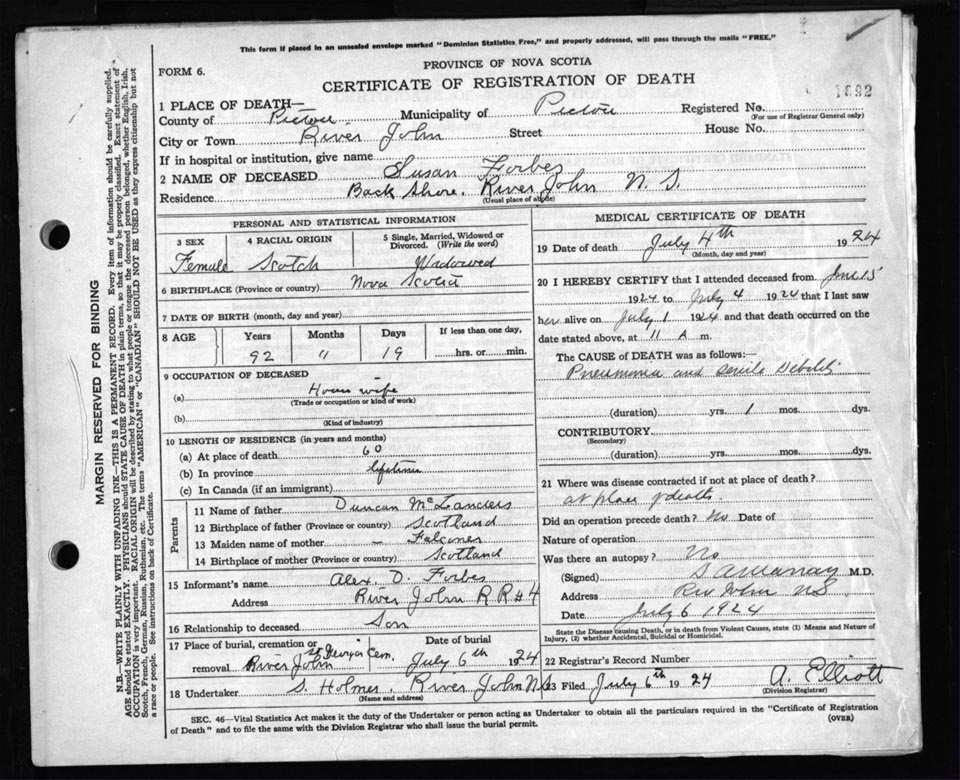 This form if placed in an unsealed envelope marked "Dominion Statistics Free," and properly addressed, will pass through the mails "FREE."
PROVINCE OF NOVA SCOTIA
FORM 6.
CERTIFICATE OF REGISTRATION OF DEATH
1892
1 PLACE OF DEATH—
County of Pictou Municipality of Pictou Registered No.
(For use of Registrar General only)
City or Town River John Street House No.
If in hospital or institution, give name
2 NAME OF DECEASED Susan Forbes
Residence Back Shore, River John N. S.
(Usual place of abode)
PERSONAL AND STATISTICAL INFORMATION
3 SEX 4 RACIAL ORIGIN 5 Single, Married, Widowed or Divorced. (Write the word)
Female Scotch Widowed
6 BIRTHPLACE (Province or country) Nova Scotia
7 DATE OF BIRTH (month, day and year)
8 AGE Years Months Days If less than one day,
92 " 19 hrs. or min.
9 OCCUPATION OF DECEASED
(a) House wife
(Trade or occupation or kind of work)
(b)
(Kind of industry)
10 LENGTH OF RESIDENCE (in years and months)
(a) At place of death 60
(b) In province lifetime
(c) In Canada (if an immigrant)
Parents
11 Name of father Duncan McLanders
12 Birthplace of father (Province or country) Scotland
13 Maiden name of mother — Falconer
14 Birthplace of mother (Province or country) Scotland
15 Informant's name Alex. D. Forbes
Address River John R R #4
16 Relationship to deceased Son
17 Place of burial, cremation or removal River John St Georges Cem. Date of burial July 6th 1924
18 Undertaker S. Holmes, River John N.S
(Name and address)
MEDICAL CERTIFICATE OF DEATH
19 Date of death July 4th 1924
(Month, day and year)
20 I HEREBY CERTIFY that I attended deceased from June 15
1924 to July 4 1924 that I last saw
her alive on July 1 1924 and that death occurred on the
date stated above, at 11 A m.
The CAUSE of DEATH was as follows:—
Pneumonia and Senile Debility
(duration) yrs. 1 mos. dys.
CONTRIBUTORY
(Secondary)
(duration) yrs. mos. dys.
21 Where was disease contracted if not at place of death?
at place of death.
Did an operation precede death? No Date of
Nature of operation
Was there an autopsy? No
(Signed) M.D.
Address Riv John NS
Date July 6 1924
State the Disease causing Death, or in death from Violent Causes, state (1) Means and Nature of
Injury, (2) whether Accidental, Suicidal or Homicidal.
22 Registrar's Record Number
23 Filed July 6th 1924 A. Elliott
(Division Registrar)
SEC. 46—Vital Statistics Act makes it the duty of the Undertaker or person acting as Undertaker to obtain all the particulars required in the "Certificate of Registration
of Death" and to file the same with the Division Registrar who shall issue the burial permit.
(OVER)
MARGIN RESERVED FOR BINDING
N.B.—WRITE PLAINLY WITH UNFADING INK—THIS IS A PERMANENT RECORD. Every item of information should be carefully supplied.
AGE should be stated EXACTLY. PHYSICIANS should STATE CAUSE OF DEATH in plain terms, so that it may be properly classified. Exact statement of
OCCUPATION is very important. RACIAL ORIGIN will be described by stating to what people or tongue the deceased person belonged, whether English, Irish,
Scotch, French, German, Russian, Ruthenian, etc. The terms "AMERICAN" or "CANADIAN" SHOULD NOT BE USED as they express citizenship but not
a race or people. See instructions on back of Certificate.